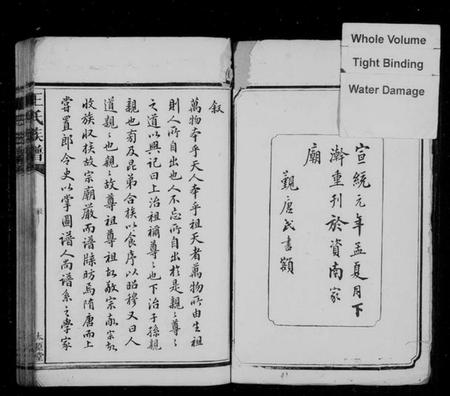 Whole Volume
Tight Binding
Water Damage
宣統元年孟夏月下
澣重刊於資南家
廟
觀唐氏書顥
敘
萬物本乎天人本乎祖天者萬物所由生祖
則人所自出也人不忘所自出於是親〻尊〻
之道以興記曰上治祖禰尊〻也下治子孫親
親也旁及昆弟合族以食序以昭穆又曰人
道親〻也親〻故尊祖尊祖故敬宗敬宗故
收族收族故宗廟嚴而譜牒昉焉隋唐而上
嘗置郎令史以掌圖譜人尚譜系之學家
王氏族譜